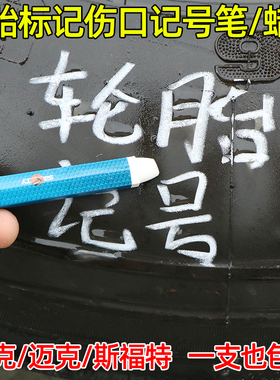 胎标记伤口记号笔/
轮胎
记号
克/迈克/斯福特 一支也包